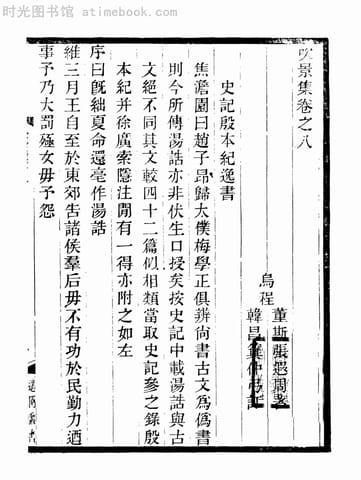 时光图书馆 atimebook.com
吹景集卷之八
烏程
董斯張遐周著
韓昌箕仲弓訂
史記殷本紀逸書
焦澹園曰趙子昂歸太僕梅學正俱辨尚書古文爲僞書
則今所傳湯誥亦非伏生口授矣按史記中載湯誥與古
文絕不同其文較四十二篇似相類當取史記參之錄殷
本紀并徐廣索隱注閒有一得亦附之如左
序曰旣絀夏命還亳作湯誥
維三月王自至於東郊告諸侯羣后毋不有功於民勤力迺
事予乃大罰殛女毋予怨